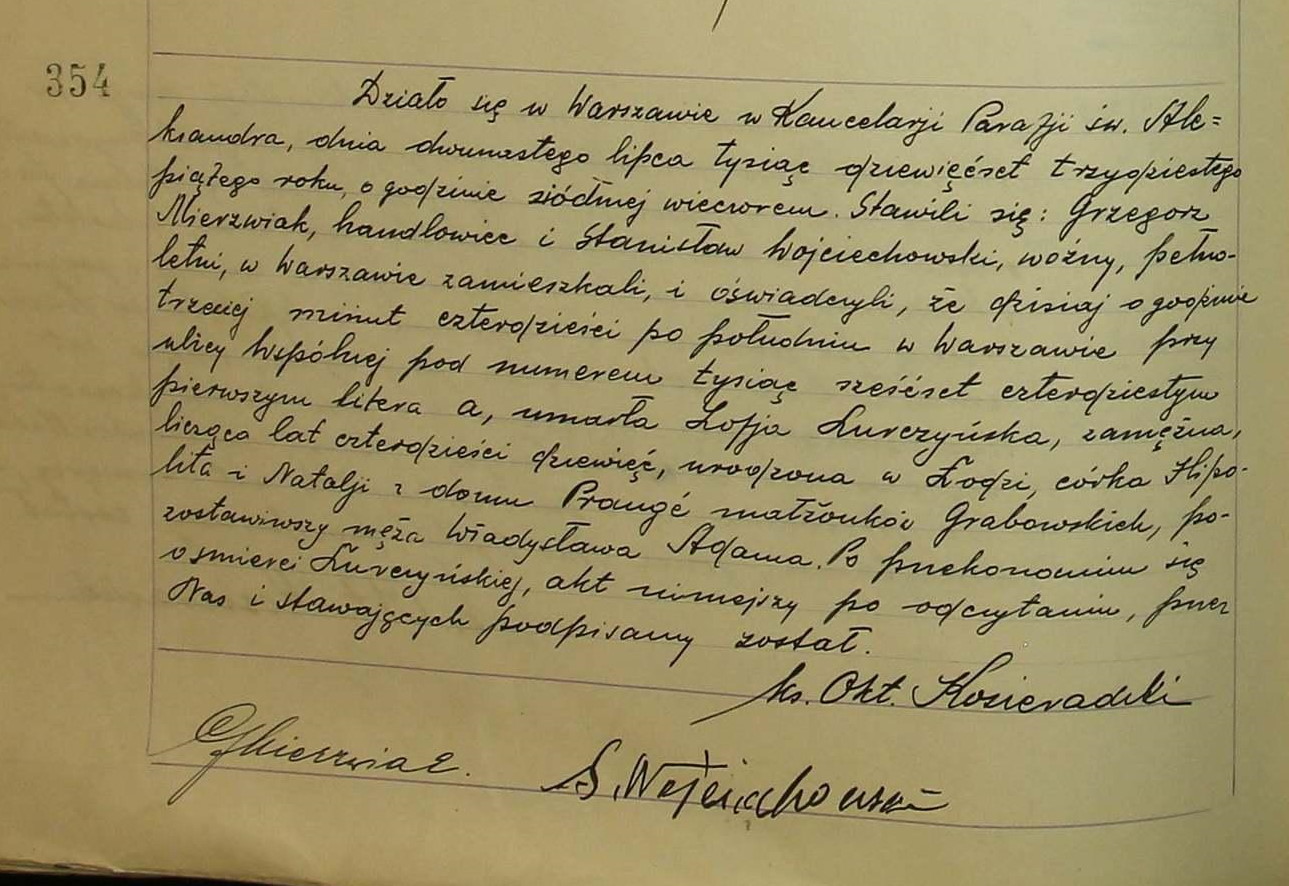 354
Działo się w Warszawie w Kancelarji Parafji św. Ale=
ksandra, dnia dwunastego lipca tysiąc dziewięćset trzydziestego
piątego roku, o godzinie siódmej wieczorem. Stawili się: Grzegorz
Mierzwiak, handlowiec i Stanisław Wojciechowski, woźny, pełno-
letni, w Warszawie zamieszkali, i oświadczyli, że dzisiaj o godzinie
trzeciej minut czterdzieści po południu w Warszawie przy
ulicy Wspólnej pod numerem tysiąc sześćset czterdziestym
pierwszym litera a, umarła Zofja Żurczyńska, zamężna,
licząca lat czterdzieści dziewięć, urodzona w Łodzi, córka Hipo-
lita i Natalji z domu Prangé małżonków Grabowskich, po-
zostawiwszy męża Władysława Adama. Po przekonaniu się
o śmierci Żurczyńskiej, akt niniejszy po odczytaniu, przez
Nas i stawających podpisany został.
ks. Okt. Kosieradzki
G Mierzwiak. S. Wojciechowski